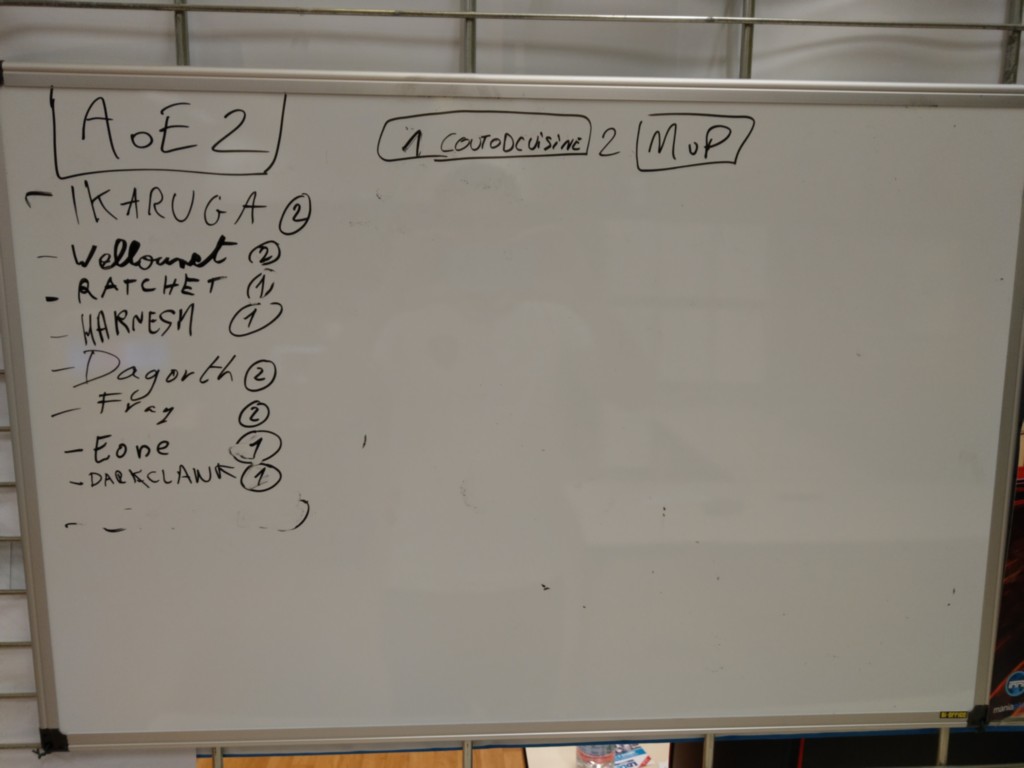 AoE2
1 COUTODCUISINE 2 MoP
- IKARUGA 2
- Wellounet 2
- RATCHET 1
- HARNESH 1
- Dagorth 2
- Fray 2
- Eone 1
- DARKCLAWK 1
mania